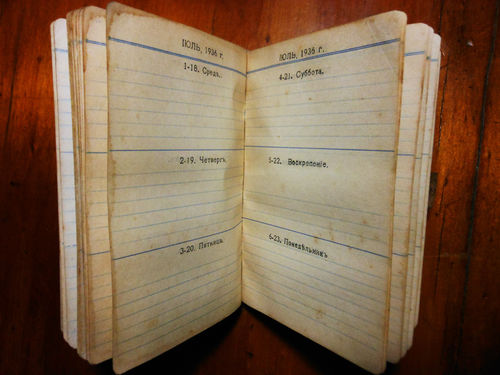 ІЮЛЬ, 1936 г.
1-18. Среда.
2-19. Четвергъ
3-20. Пятница
ІЮЛЬ, 1936 г.
4-21. Суббота.
5-22. Воскресеніе.
6-23. Понедѣльникъ